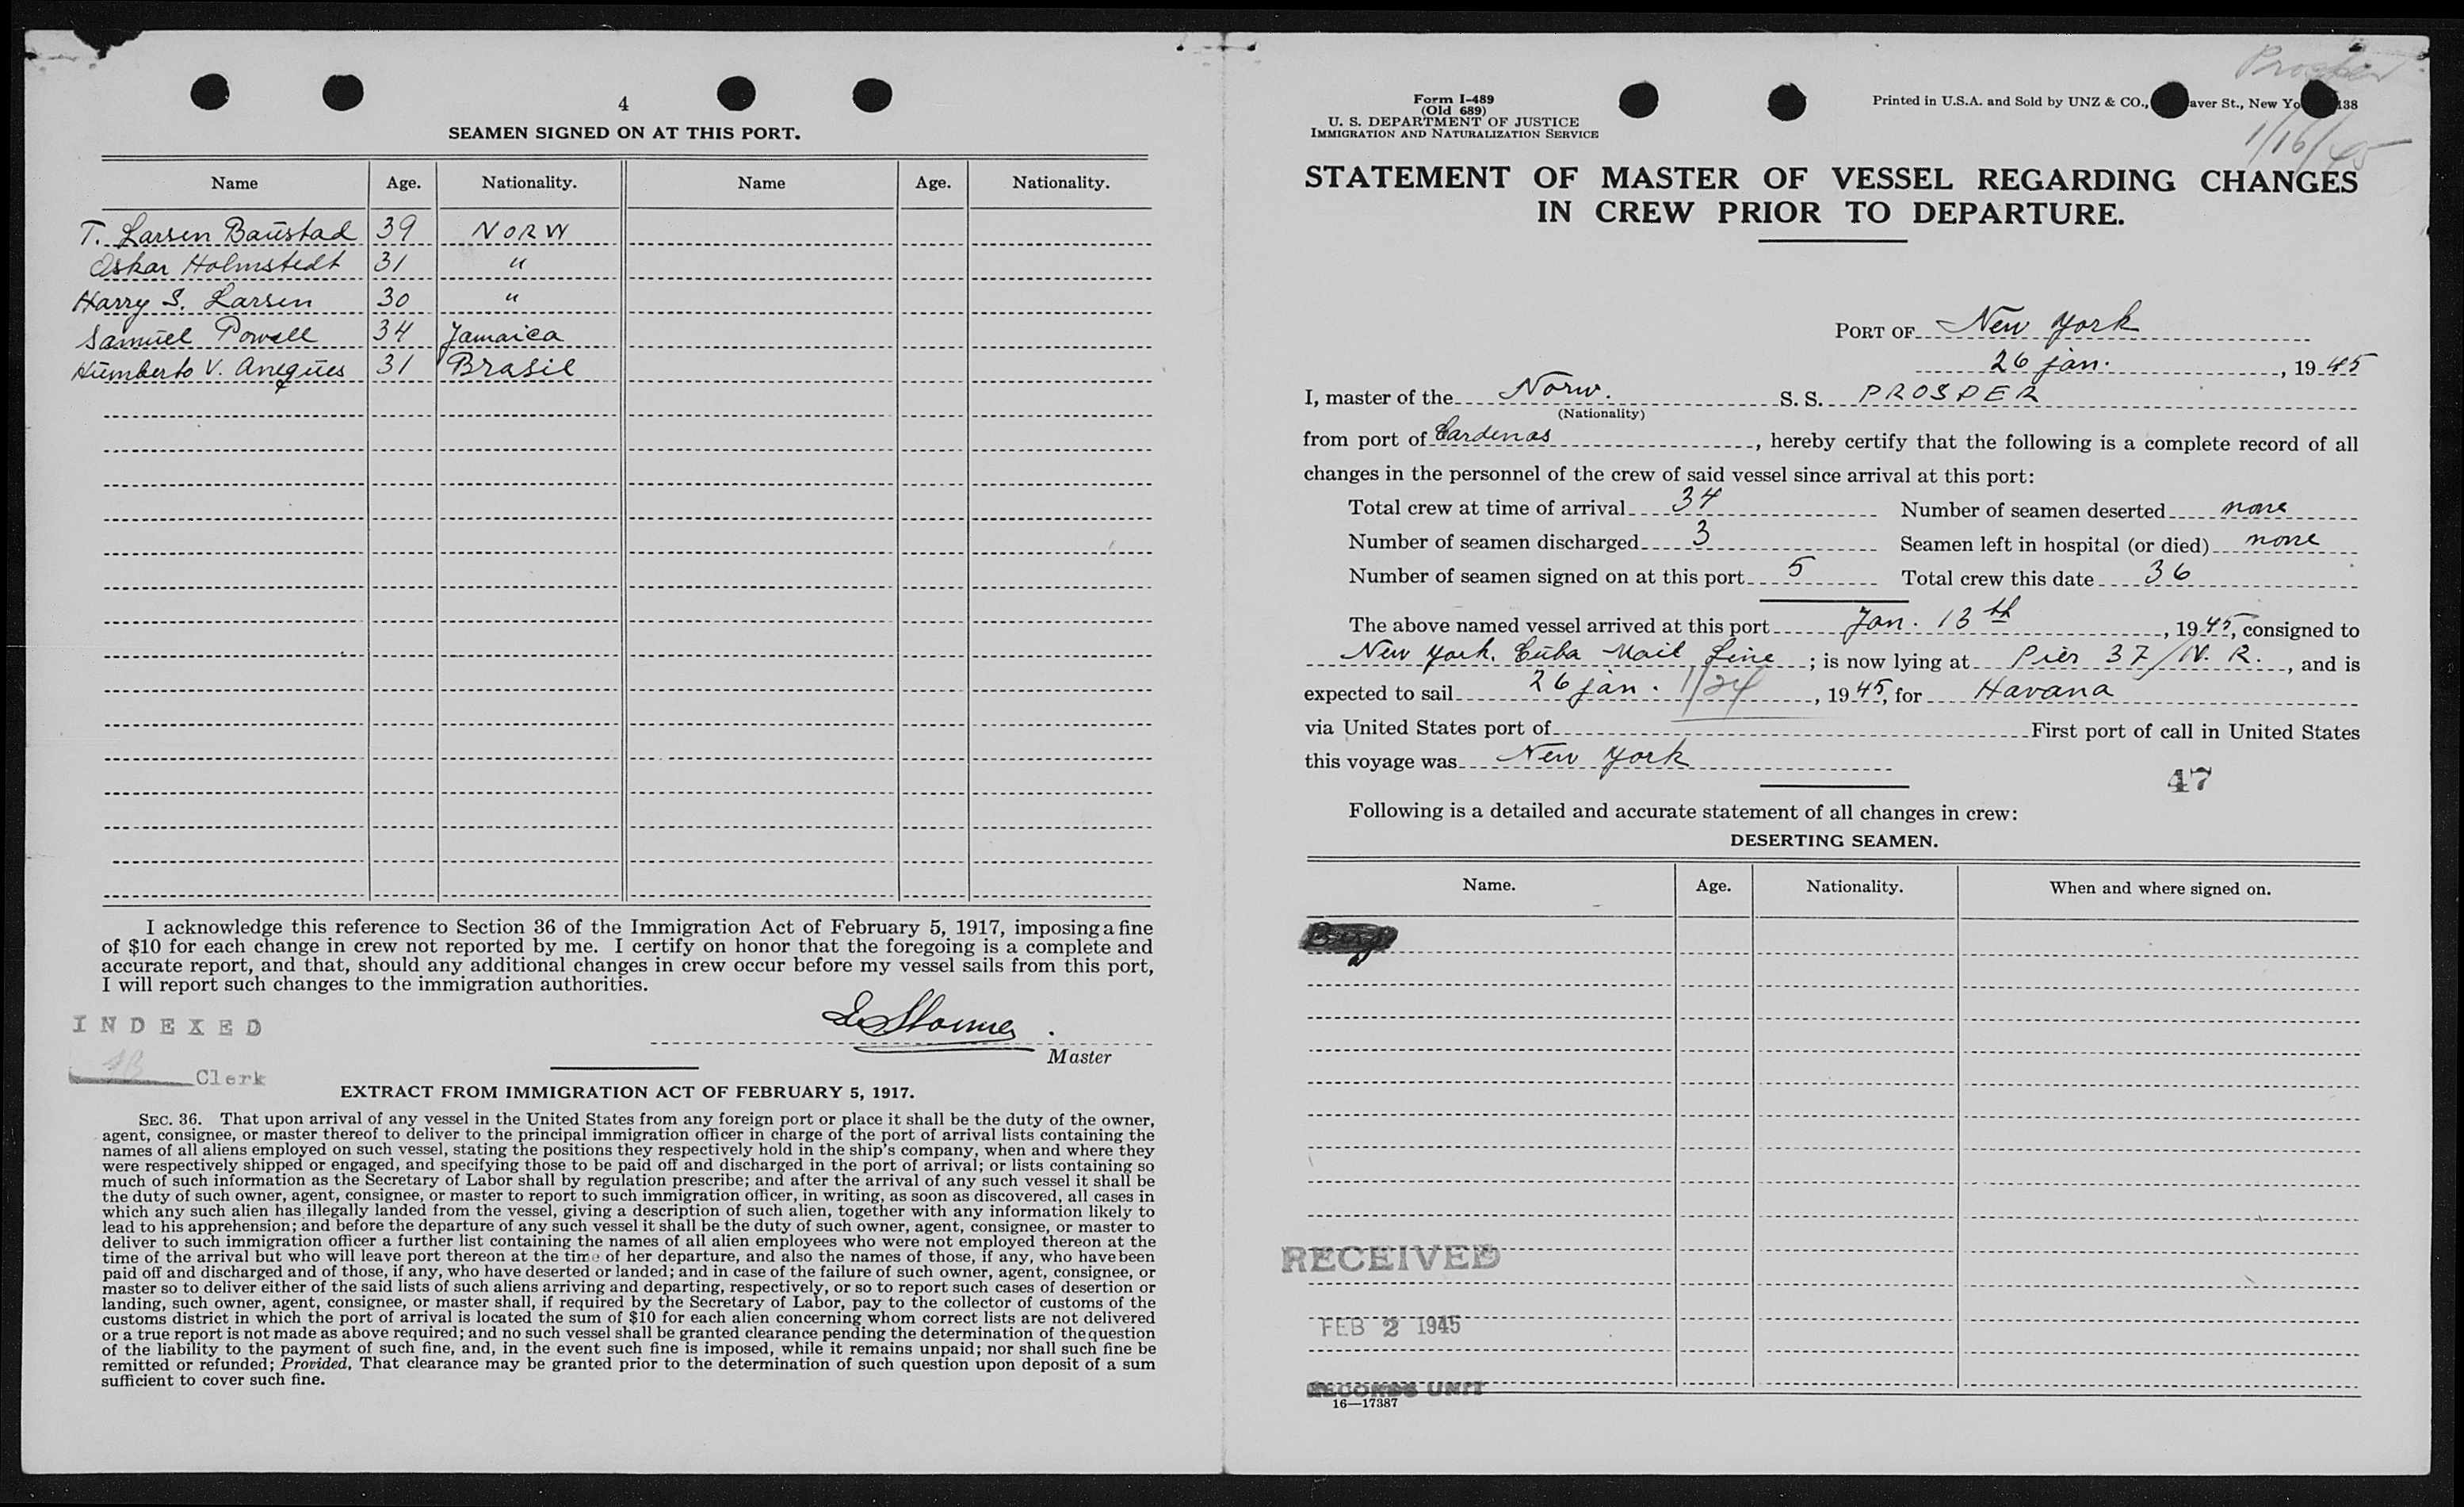 4
SEAMEN SIGNED ON AT THIS PORT.
Name Age. Nationality. Name Age. Nationality.
T. Larsen Baustad 39 NORW
Oskar Holmstedt 31 "
Harry S. Larsen 30 "
Samuel Powell 34 Jamaica
Humberto V. 31 Brasil
I acknowledge this reference to Section 36 of the Immigration Act of February 5, 1917, imposing a fine
of $10 for each change in crew not reported by me. I certify on honor that the foregoing is a complete and
accurate report, and that, should any additional changes in crew occur before my vessel sails from this port,
I will report such changes to the immigration authorities.
INDEXED
Master
Clerk
EXTRACT FROM IMMIGRATION ACT OF FEBRUARY 5, 1917.
SEC. 36. That upon arrival of any vessel in the United States from any foreign port or place it shall be the duty of the owner,
agent, consignee, or master thereof to deliver to the principal immigration officer in charge of the port of arrival lists containing the
names of all aliens employed on such vessel, stating the positions they respectively hold in the ship's company, when and where they
were respectively shipped or engaged, and specifying those to be paid off and discharged in the port of arrival; or lists containing so
much of such information as the Secretary of Labor shall by regulation prescribe; and after the arrival of any such vessel it shall be
the duty of such owner, agent, consignee, or master to report to such immigration officer, in writing, as soon as discovered, all cases in
which any such alien has illegally landed from the vessel, giving a description of such alien, together with any information likely to
lead to his apprehension; and before the departure of any such vessel it shall be the duty of such owner, agent, consignee, or master to
deliver to such immigration officer a further list containing the names of all alien employees who were not employed thereon at the
time of the arrival but who will leave port thereon at the time of her departure, and also the names of those, if any, who have been
paid off and discharged and of those, if any, who have deserted or landed; and in case of the failure of such owner, agent, consignee, or
master so to deliver either of the said lists of such aliens arriving and departing, respectively, or so to report such cases of desertion or
landing, such owner, agent, consignee, or master shall, if required by the Secretary of Labor, pay to the collector of customs of the
customs district in which the port of arrival is located the sum of $10 for each alien concerning whom correct lists are not delivered
or a true report is not made as above required; and no such vessel shall be granted clearance pending the determination of the question
of the liability to the payment of such fine, and, in the event such fine is imposed, while it remains unpaid; nor shall such fine be
remitted or refunded; Provided, That clearance may be granted prior to the determination of such question upon deposit of a sum
sufficient to cover such fine.
Prosper
Form I-489
(Old 689)
U. S. DEPARTMENT OF JUSTICE
IMMIGRATION AND NATURALIZATION SERVICE
Printed in U.S.A. and Sold by UNZ & CO., aver St., New Yo 138
1/16/45
STATEMENT OF MASTER OF VESSEL REGARDING CHANGES
IN CREW PRIOR TO DEPARTURE.
PORT OF New York
26 jan. , 1945
I, master of the Norw. S. S. PROSPER
(Nationality)
from port of Cardenas , hereby certify that the following is a complete record of all
changes in the personnel of the crew of said vessel since arrival at this port:
Total crew at time of arrival 34 Number of seamen deserted none
Number of seamen discharged 3 Seamen left in hospital (or died) none
Number of seamen signed on at this port 5 Total crew this date 36
The above named vessel arrived at this port Jan. 13th , 1945, consigned to
New York. Cuba Mail Line ; is now lying at Pier 37/N. R. , and is
expected to sail 26 jan. 1/24 , 1945, for Havana
via United States port of First port of call in United States
this voyage was New York
47
Following is a detailed and accurate statement of all changes in crew:
DESERTING SEAMEN.
Name. Age. Nationality. When and where signed on.
RECEIVED
FEB 2 1945
RECORDS UNIT
16—17387